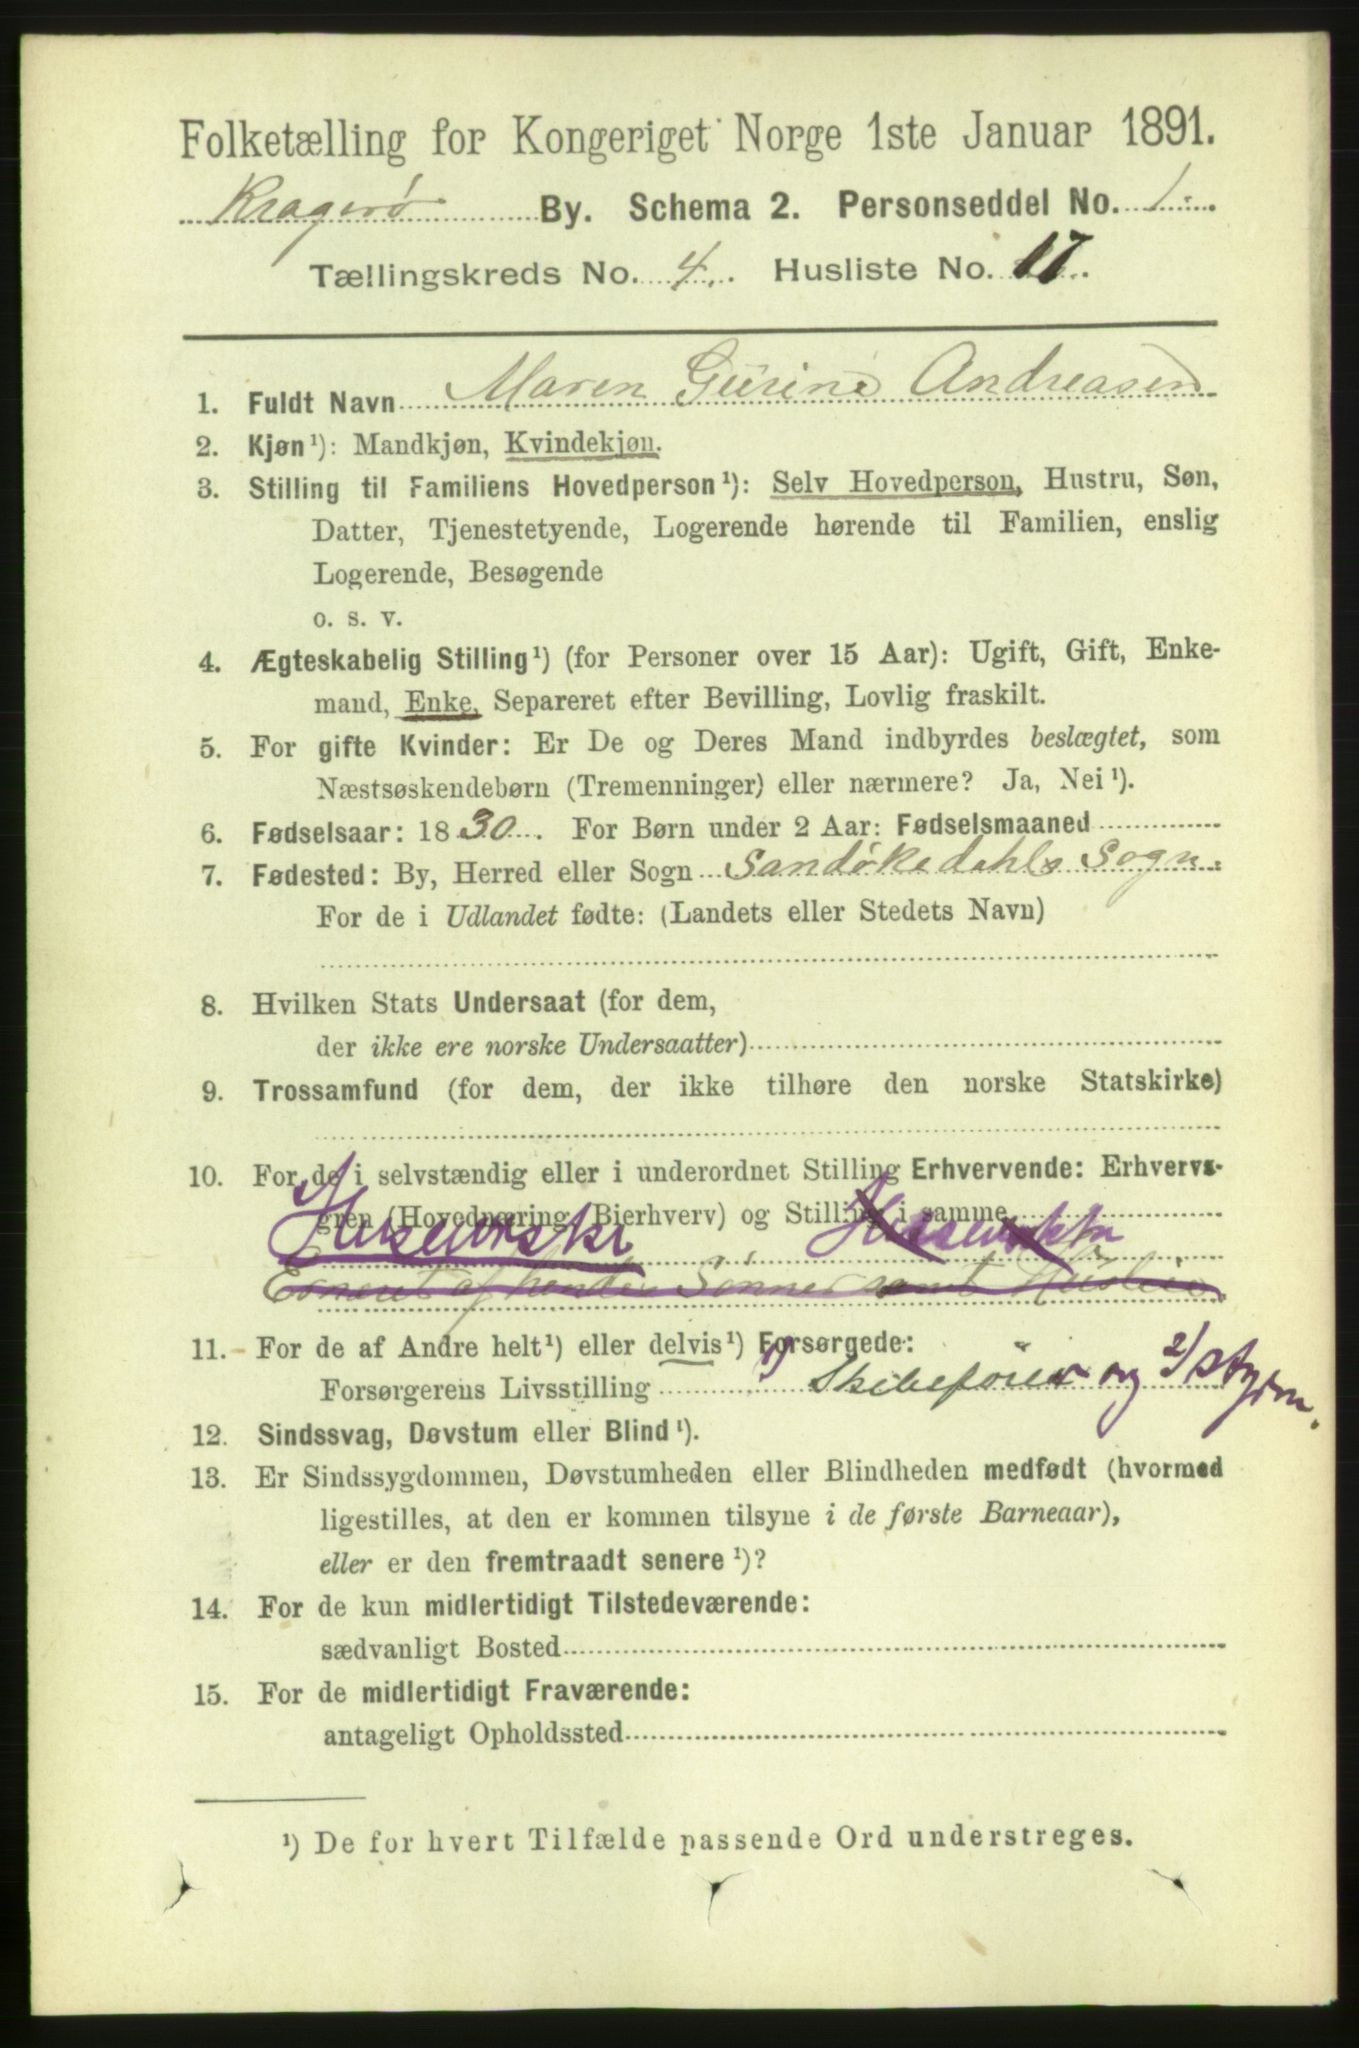 Folketælling for Kongeriget Norge 1ste Januar 1891.
Kragerø By. Schema 2. Personseddel No. 1.
Tællingskreds No. 4. Husliste No. 17.
1. Fuldt Navn Maren Gurine Andreasen
2. Kjøn¹): Mandkjøn, Kvindekjøn.
3. Stilling til Familiens Hovedperson¹): Selv Hovedperson, Hustru, Søn,
Datter, Tjenestetyende, Logerende hørende til Familien, enslig
Logerende, Besøgende
o. s. v.
4. Ægteskabelig Stilling¹) (for Personer over 15 Aar): Ugift, Gift, Enke-
mand, Enke, Separeret efter Bevilling, Lovlig fraskilt.
5. For gifte Kvinder: Er De og Deres Mand indbyrdes beslægtet, som
Næstsøskendebørn (Tremenninger) eller nærmere? Ja, Nei¹).
6. Fødselsaar: 1830. For Børn under 2 Aar: Fødselsmaaned
7. Fødested: By, Herred eller Sogn Sandøkedahls Sogn.
For de i Udlandet fødte: (Landets eller Stedets Navn)
8. Hvilken Stats Undersaat (for dem,
der ikke ere norske Undersaatter)
9. Trossamfund (for dem, der ikke tilhøre den norske Statskirke)
10. For de i selvstændig eller i underordnet Stilling Erhvervende: Erhvervs-
gren (Hovednæring, Bierhverv) og Stilling i samme
Ernæret af hendes Sønner samt Husleie
11. For de af Andre helt¹) eller delvis¹) Forsørgede:
Forsørgerens Livsstilling 1) Skibsfører og 2/ styrm.
12. Sindssvag, Døvstum eller Blind¹).
13. Er Sindssygdommen, Døvstumheden eller Blindheden medfødt (hvormed
ligestilles, at den er kommen tilsyne i de første Barneaar),
eller er den fremtraadt senere¹)?
14. For de kun midlertidigt Tilstedeværende:
sædvanligt Bosted
15. For de midlertidigt Fraværende:
antageligt Opholdssted
¹) De for hvert Tilfælde passende Ord understreges.